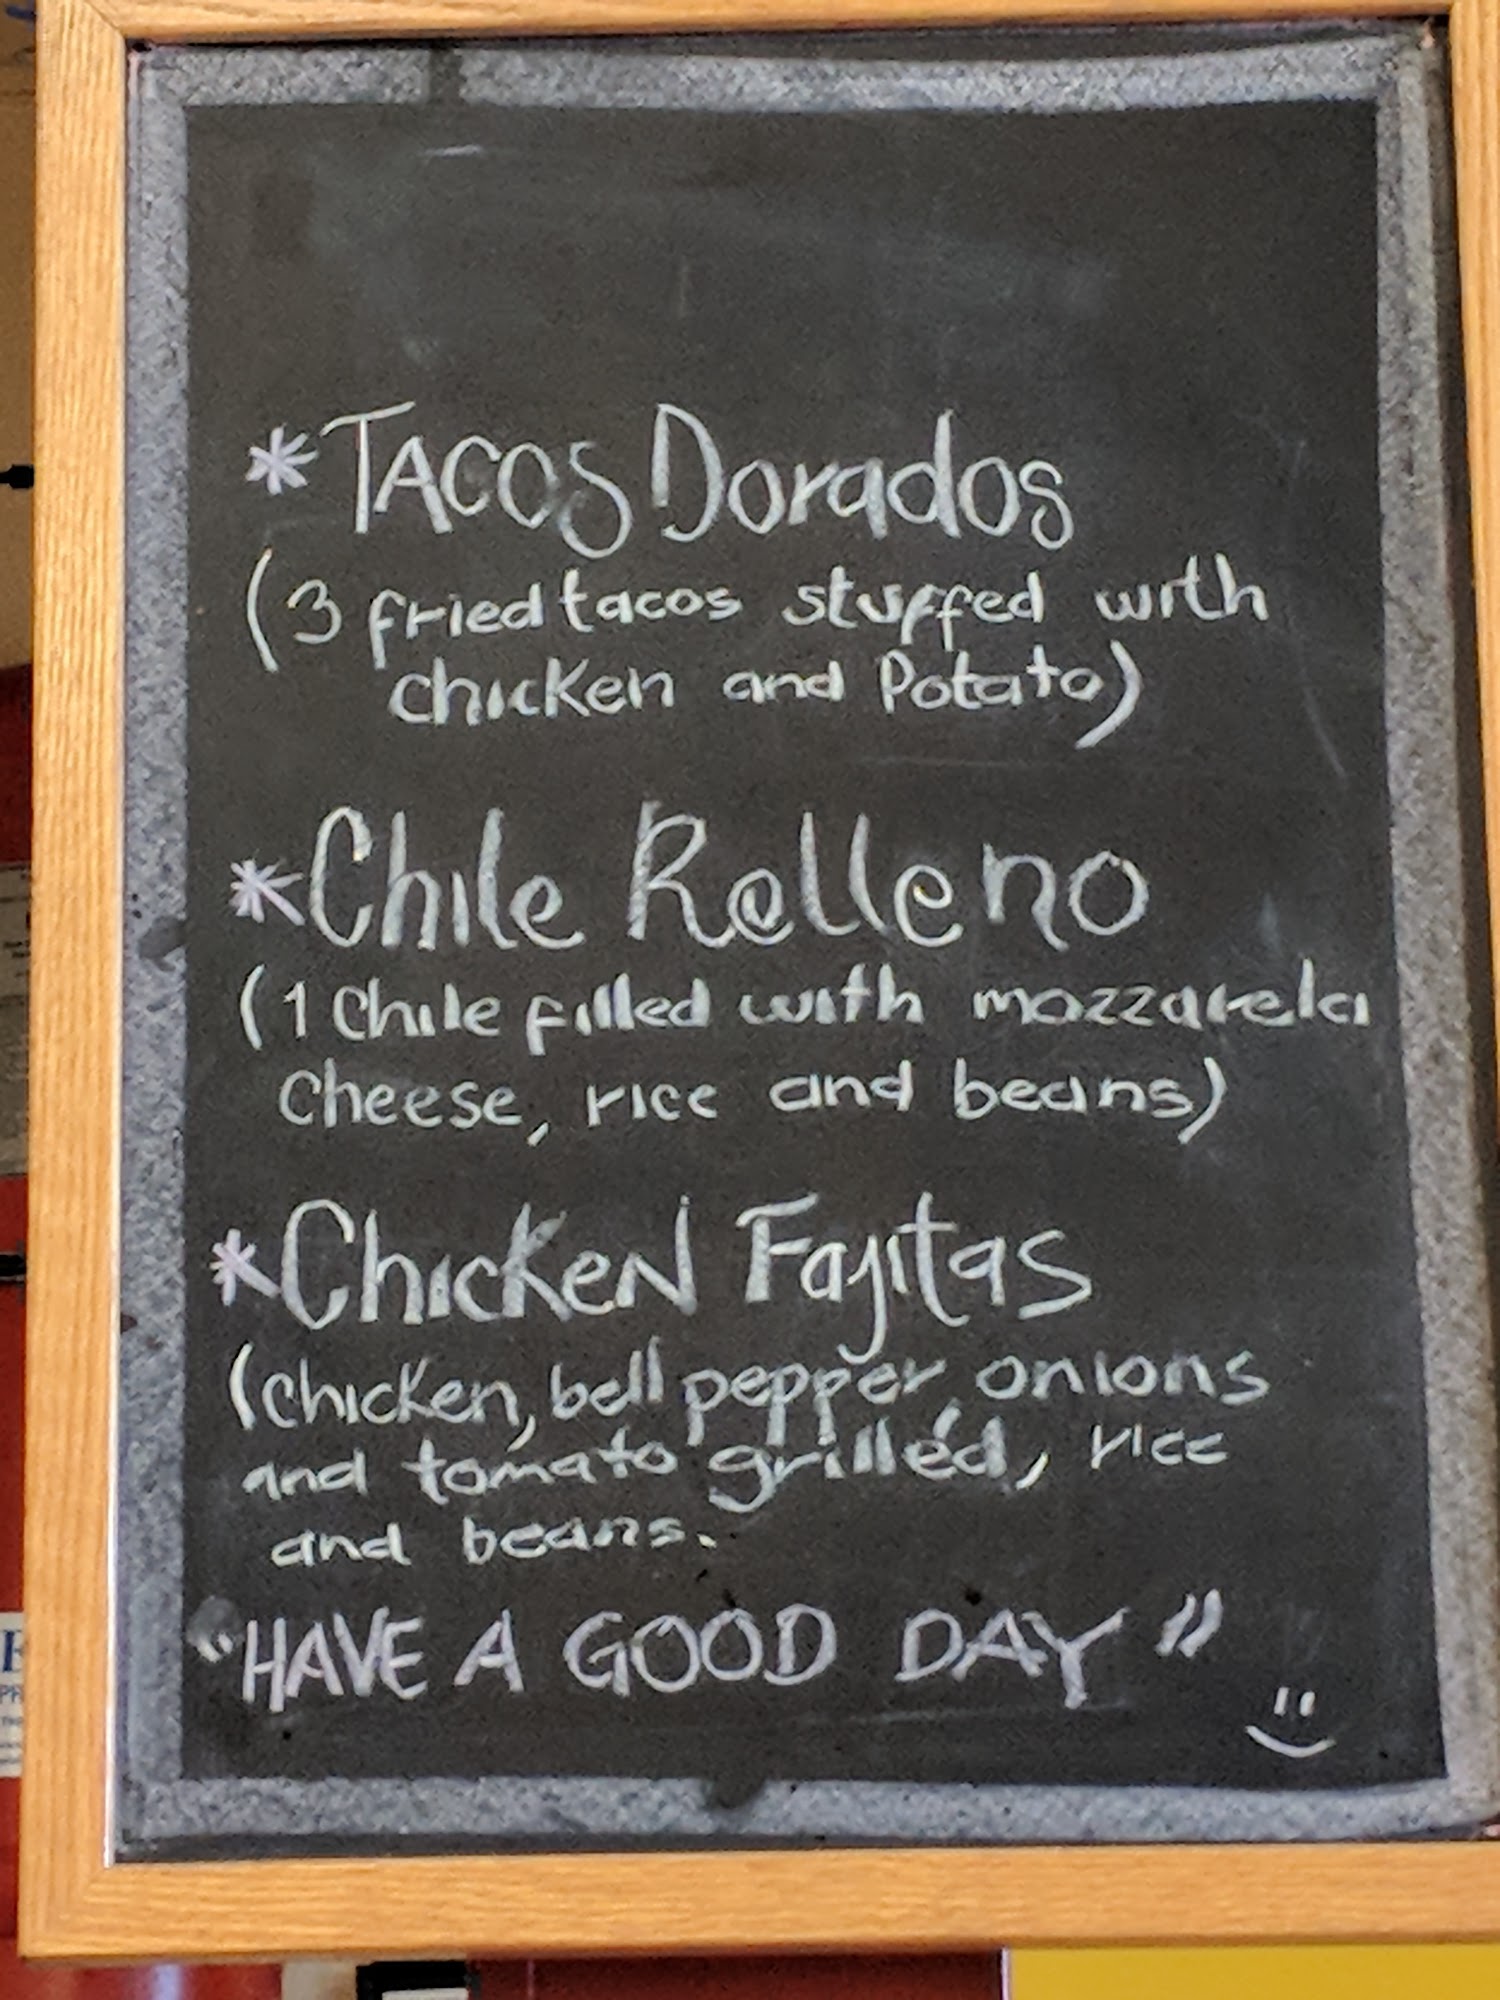 *TACOS Dorados
(3 fried tacos stuffed with
chicken and Potato)
*Chile Relleno
(1 Chile filled with mozzarela
cheese, rice and beans)
*Chicken Fajitas
(chicken, bell pepper, onions
and tomato grilled, rice
and beans.
"HAVE A GOOD DAY"